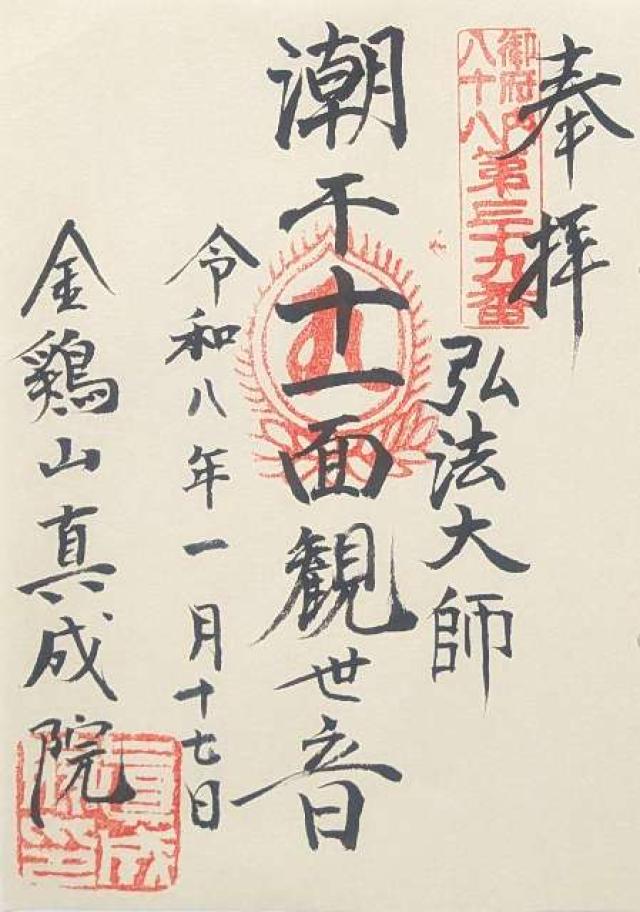 奉拝
御府内
八十八
第三十九番
弘法大師
潮干十一面観世音
令和八年一月十七日
金鶏山真成院
真成
院印